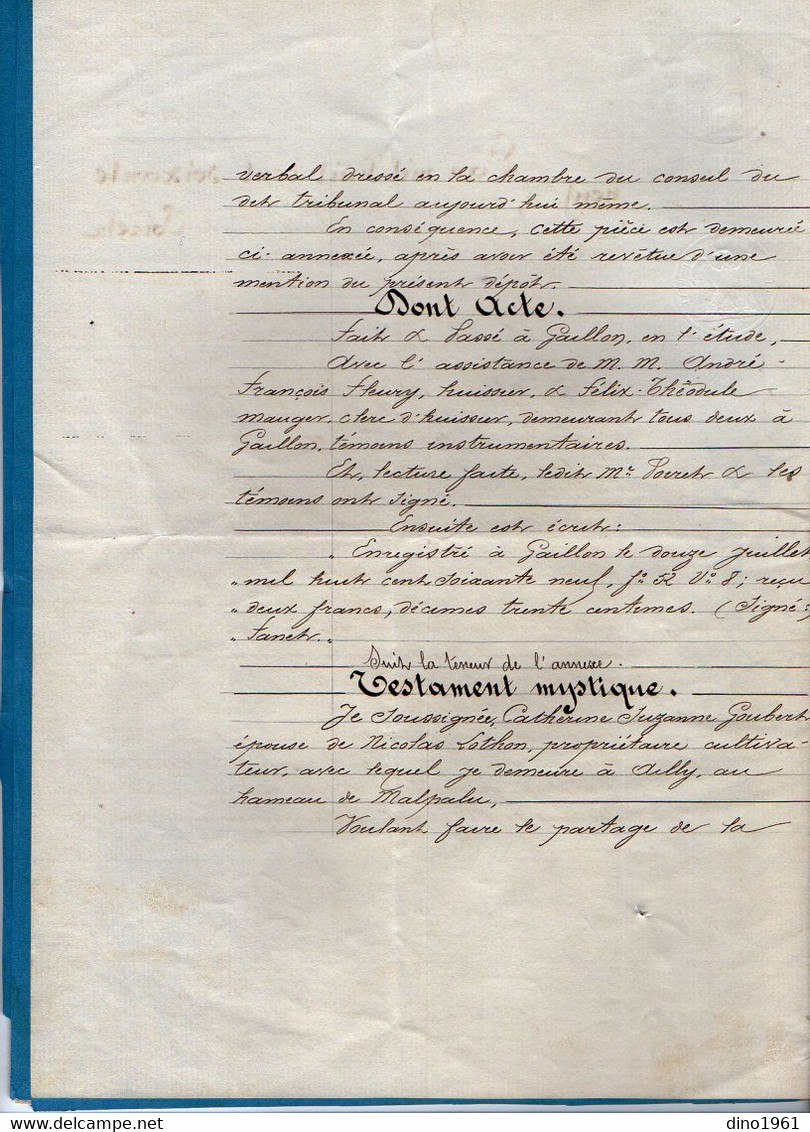 verbal dressé en la chambre du conseil du
dit tribunal aujourd'hui même.
En conséquence, cette pièce est demeurée
ci-annexée, après avoir été revêtue d'une
mention du présent dépôt.
Dont Acte.
Fait & Passé à Gaillon, en l'étude,
Avec l'assistance de M. M. André-
François Fleury, huissier, & Félix-Théodule
Mauger, clerc d'huissier, demeurant tous deux à
Gaillon, témoins instrumentaires.
Et, lecture faite, ledit Me Porret & les
témoins ont signé.
Ensuite est écrit:
„ Enregistré à Gaillon le douze juillet
„ mil huit cent soixante neuf, fo 52 Vo 8; reçu
„ deux francs, décimes trente centimes. (Signé:)
„ Fanet. „
Suit la teneur de l'annexe.
Testament mystique.
Je soussignée, Catherine Suzanne Goubert
épouse de Nicolas Lothon, propriétaire cultiva-
teur, avec lequel je demeure à Ailly, au
hameau de Malpalu,
Voulant faire le partage de la
dino1961